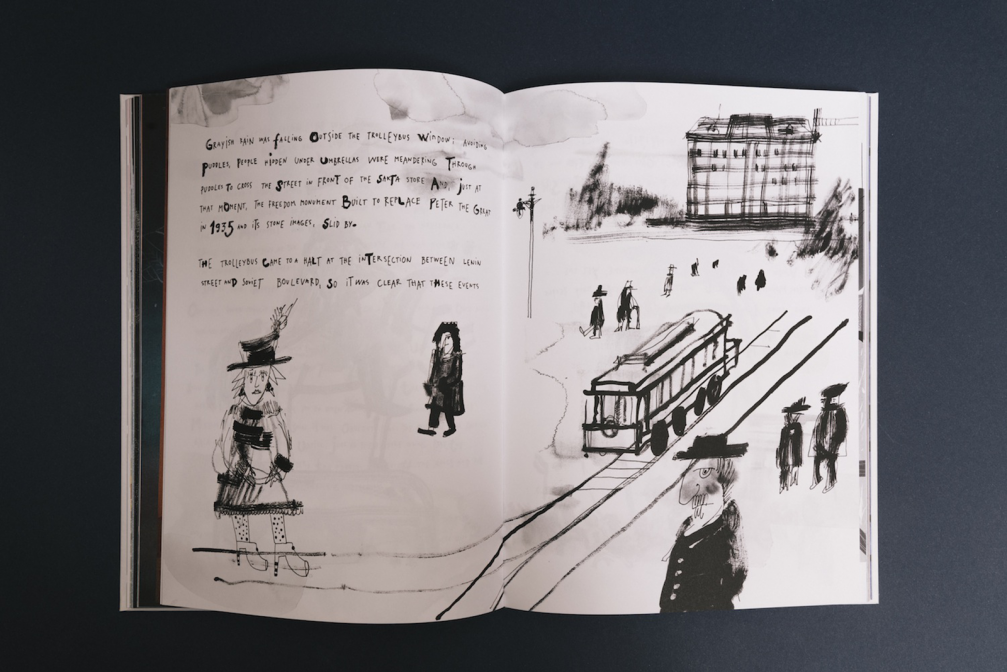 GRAYISH RAIN WAS FALLING OUTSIDE THE TROLLEYBUS WINDOW; AVOIDING
PUDDLES, PEOPLE HIDDEN UNDER UMBRELLAS WERE MEANDERING THROUGH
PUDDLES TO CROSS THE STREET IN FRONT OF THE SAKTA STORE AND, JUST AT
THAT MOMENT, THE FREEDOM MONUMENT BUILT TO REPLACE PETER THE GREAT
IN 1935 AND ITS STONE IMAGES, SLID BY.
THE TROLLEYBUS CAME TO A HALT AT THE INTERSECTION BETWEEN LENIN
STREET AND SOVIET BOULEVARD, SO IT WAS CLEAR THAT THESE EVENTS